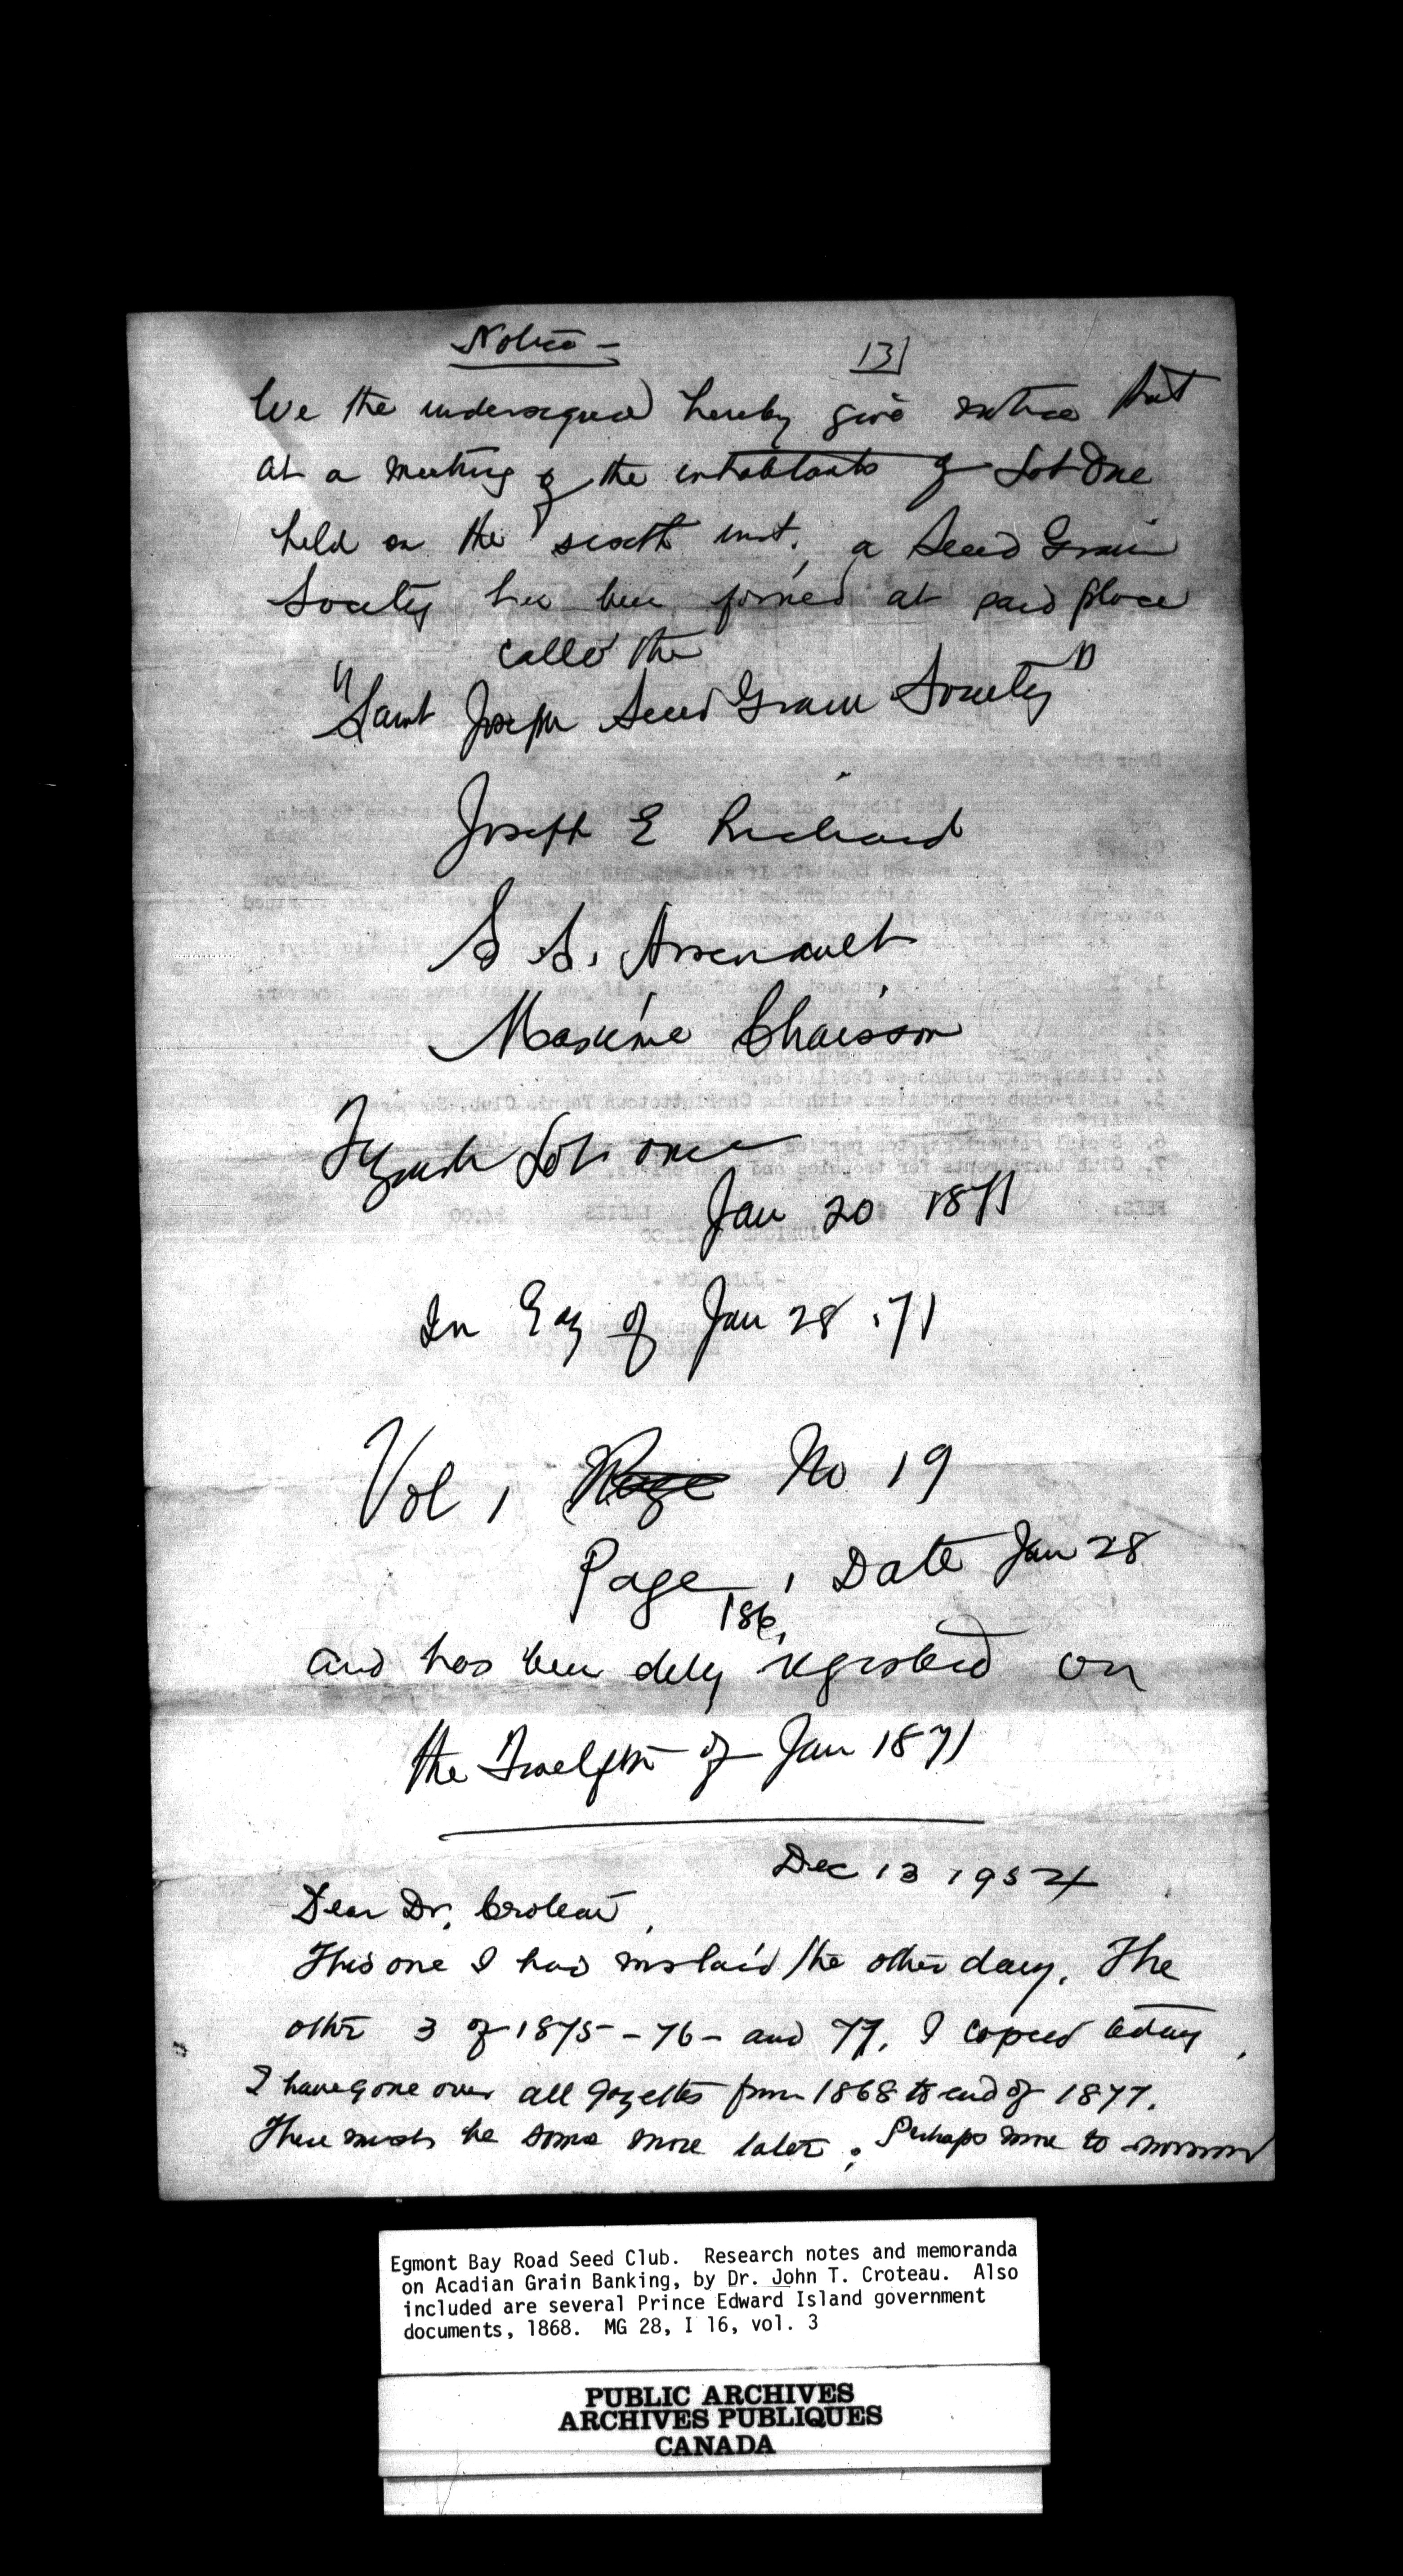 Notice -
13
We the undersigned hereby give notice that
at a meeting of the inhabitants of Lot One
held on the sixth inst. a Seed Grain
Society has been formed at said place
called the
"Saint Joseph Seed Grain Society"
Joseph E Richard
S. S. Arsenault
Maxime Chaisson
Tignish Lot one
Jan 20 1871
In Gaz of Jan 28. 71
Vol 1 No 19
Page 186, Date Jan 28
and has been duly registered on
the Twelfth of Jan 1871
Dec 13 1954
Dear Dr. Croteau,
This one I had mislaid the other day. The
other 3 of 1875 - 76 - and 77, I copied today.
I have gone over all gazettes from 1868 to end of 1877.
There must be some more later; Perhaps more to-morrow
Egmont Bay Road Seed Club. Research notes and memoranda
on Acadian Grain Banking, by Dr. John T. Croteau. Also
included are several Prince Edward Island government
documents, 1868. MG 28, I 16, vol. 3
PUBLIC ARCHIVES
ARCHIVES PUBLIQUES
CANADA